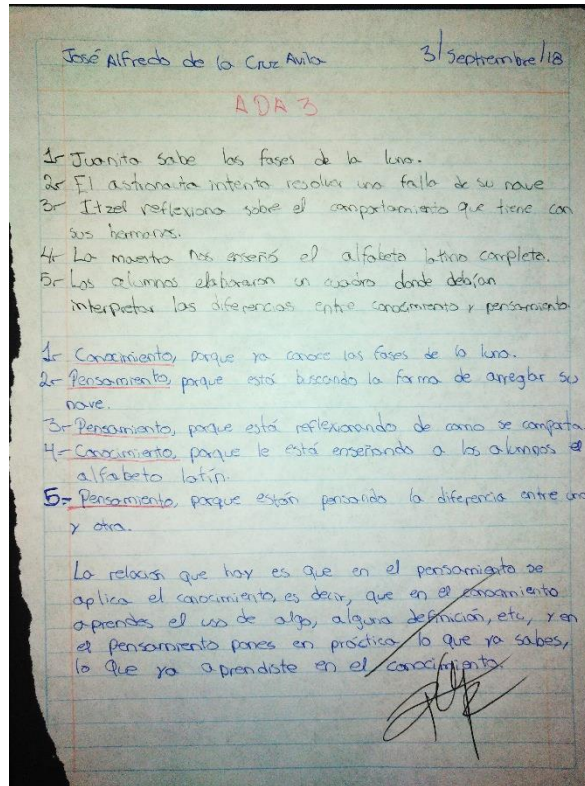 José Alfredo de la Cruz Avila 3/Septiembre/18
ADA 3
1- Juanito sabe las fases de la luna.
2- El astronauta intenta resolver una falla de su nave
3- Itzel reflexiona sobre el comportamiento que tiene con
sus hermanos.
4- La maestra nos enseñó el alfabeto latino completo.
5- Los alumnos elaboraron un cuadro donde debían
interpretar las diferencias entre conocimiento y pensamiento.
1- Conocimiento, porque ya conoce las fases de la luna.
2- Pensamiento, porque está buscando la forma de arreglar su
nave.
3- Pensamiento, porque está reflexionando de como se comporta
4- Conocimiento, porque le está enseñando a los alumnos el
alfabeto latín.
5- Pensamiento, porque están pensando la diferencia entre uno
y otra.
La relación que hay es que en el pensamiento se
aplica el conocimiento, es decir, que en el conocimiento
aprendes el uso de algo, alguna definición, etc, y en
el pensamiento pones en práctica lo que ya sabes,
lo que ya aprendiste en el conocimiento.